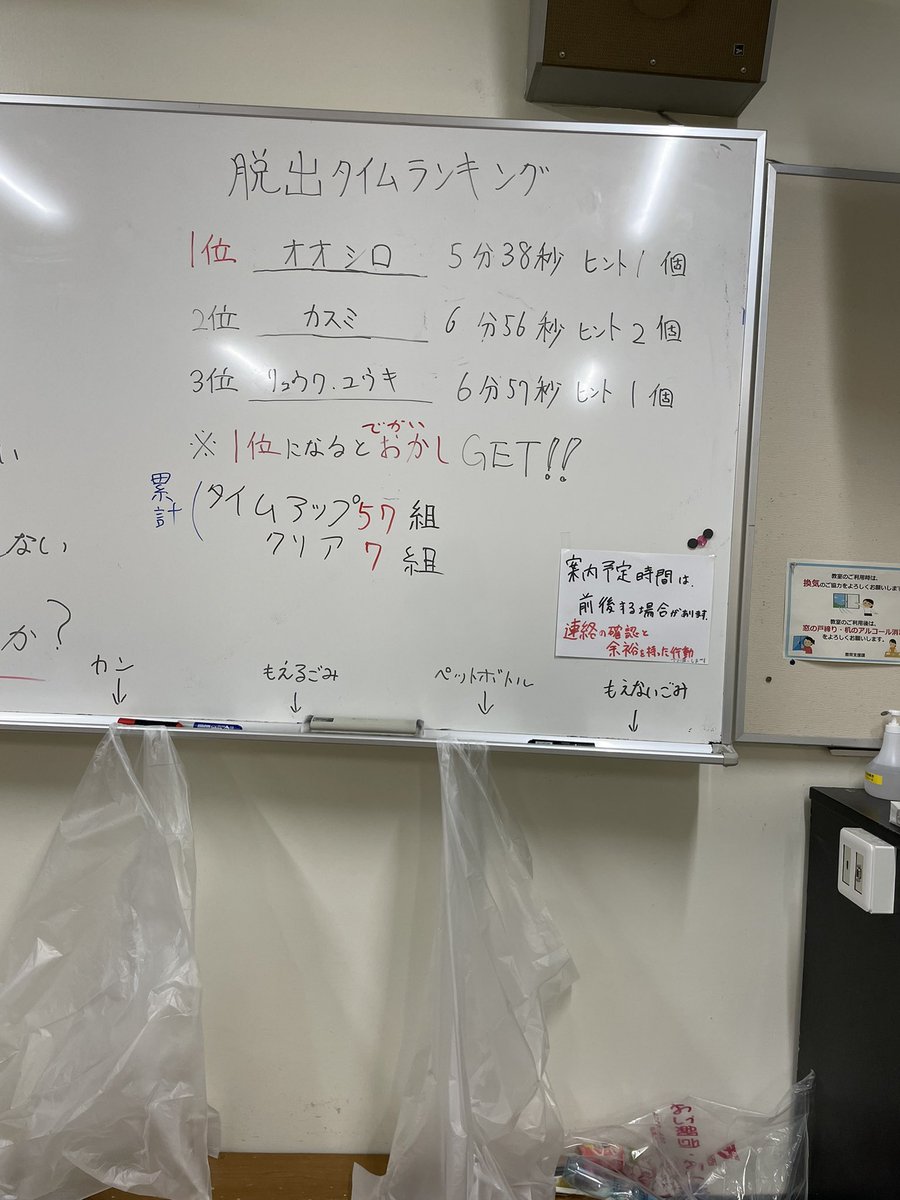 脱出タイムランキング
1位 オオシロ 5分38秒 ヒント1個
2位 カスミ 6分56秒 ヒント2個
3位 リュウワ.ユウキ 6分57秒 ヒント1個
でかい
※1位になるとおかしGET!!
い
累計
タイムアップ57組
クリア7組
ない
か?
案内予定時間は、
前後する場合があります
連絡の確認と
余裕を持った行動
教室のご利用時は、
換気のご協力をよろしくお願いします
教室のご利用後は、
窓の戸締り・机のアルコール消
をよろしくお願いします。
カン
↓
もえるごみ
↓
ペットボトル
↓
もえないごみ
↓